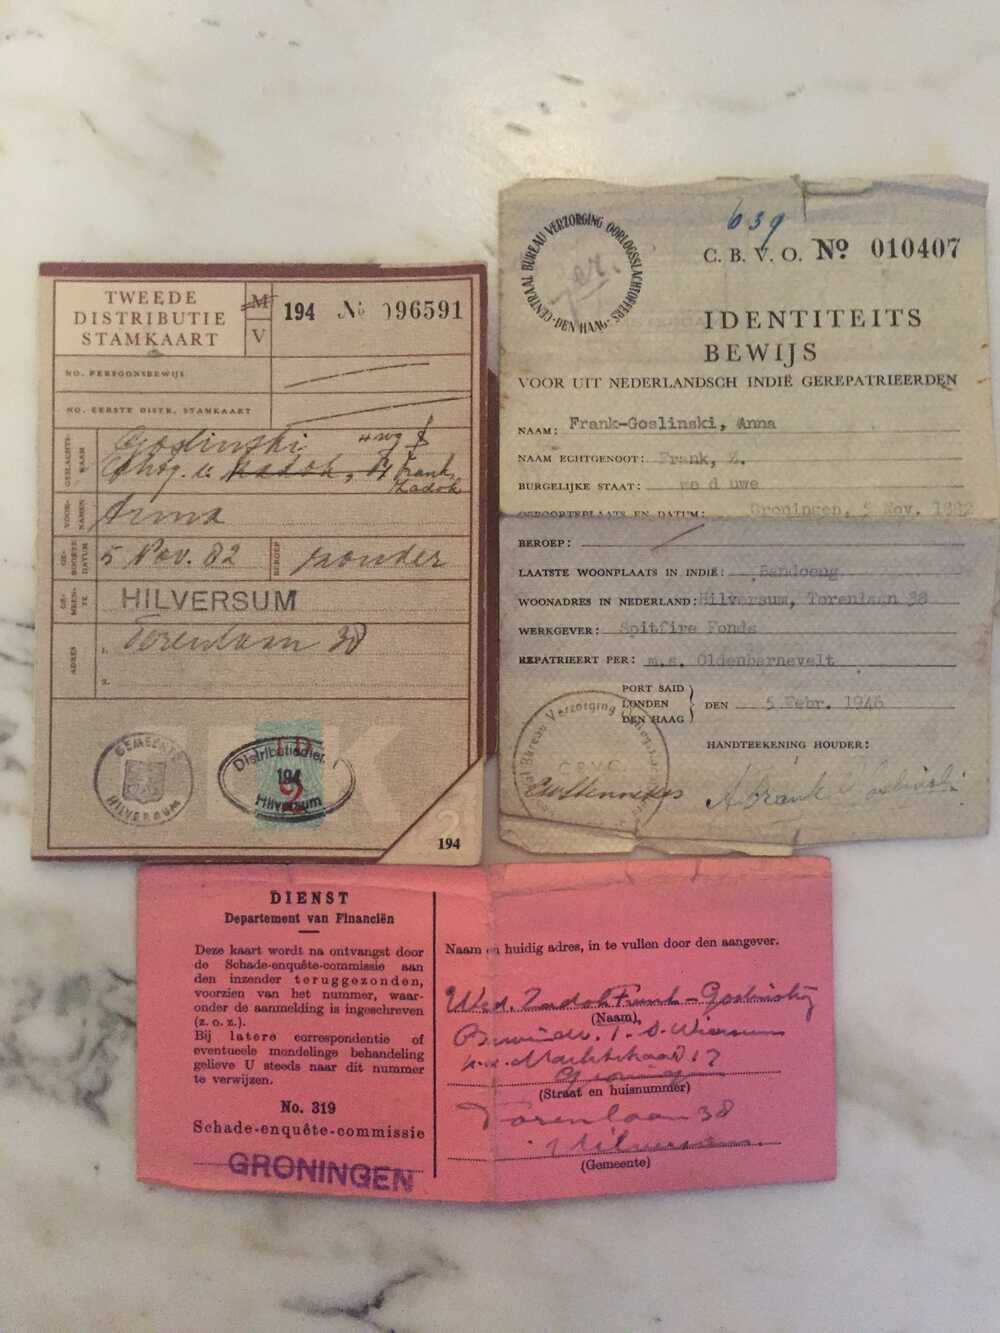 TWEEDE
DISTRIBUTIE
STAMKAART
M
V
194 No 096591
NO. PERSOONSBEWIJS
NO. EERSTE DISTR. STAMKAART
GESLACHTS-
NAAM
Goslinski
Frank,
Zadok
VOOR-
NAMEN
Anna
GE-
BOORTE
DATUM
5 Nov. 82
BEROEP
zonder
GE-
MEEN-
TE
HILVERSUM
ADRES
1. Torenlaan 38
2.
GEMEENTE
HILVERSUM
Distributiedienst
194
Hilversum
2
194
CENTRAAL BUREAU VERZORGING OORLOGSSLACHTOFFERS
DEN HAAG
639
C. B. V. O. No 010407
IDENTITEITS
BEWIJS
VOOR UIT NEDERLANDSCH INDIË GEREPATRIEERDEN
NAAM: Frank-Goslinski, Anna
NAAM ECHTGENOOT: Frank, Z.
BURGELIJKE STAAT: weduwe
GEBOORTEPLAATS EN DATUM: Groningen, 5 Nov. 1882
BEROEP:
LAATSTE WOONPLAATS IN INDIË: Bandoeng
WOONADRES IN NEDERLAND: Hilversum, Torenlaan 38
WERKGEVER: Spitfire Fonds
REPATRIEERT PER: m.s. Oldenbarnevelt
PORT SAID
LONDEN
DEN HAAG
DEN 5 Febr. 1946
HANDTEEKENING HOUDER:
C.B.V.O.
A. Frank Goslinski
DIENST
Departement van Financiën
Deze kaart wordt na ontvangst door
de Schade-enquête-commissie aan
den inzender teruggezonden,
voorzien van het nummer, waar-
onder de aanmelding is ingeschreven
(z. o. z.).
Bij latere correspondentie of
eventueele mondelinge behandeling
gelieve U steeds naar dit nummer
te verwijzen.
No. 319
Schade-enquête-commissie
GRONINGEN
Naam en huidig adres, in te vullen door den aangever.
Wed. Zadok Frank-Goslinski
(Naam),
17
Groningen
(Straat en huisnummer)
Torenlaan 38
Hilversum
(Gemeente)